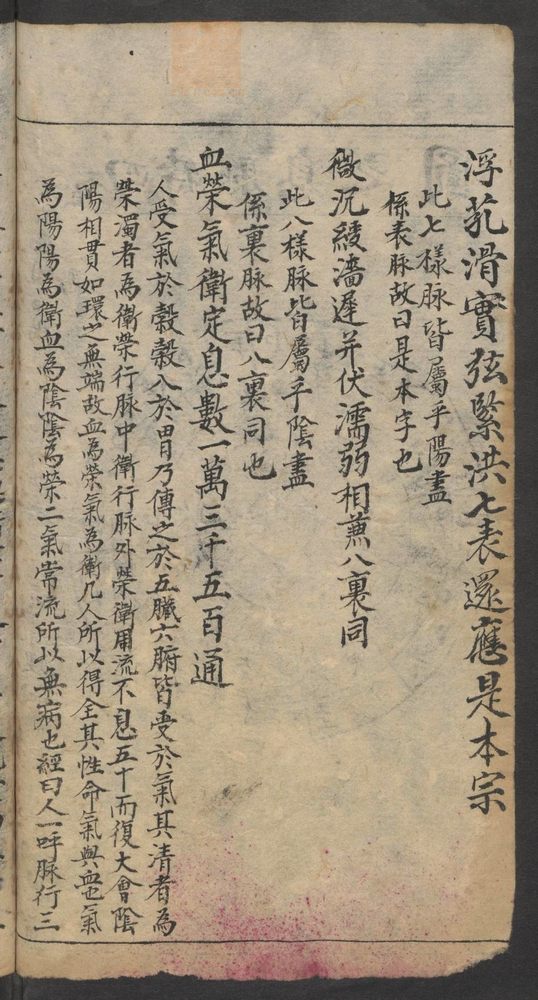 浮芤滑實弦緊洪七表還應是本宗
此七樣脉皆屬乎陽盡
係表脉故曰是本字也
微沉緩濇遲并伏濡弱相兼八裏同
此八樣脉皆屬乎陰盡
係裏脉故曰八裏同也
血榮氣衛定息數一萬三千五百通
人受氣於穀穀入於胃乃傳之於五臟六腑皆受於氣其清者為
榮濁者為衛榮行脉中衛行脉外榮衛周流不息五十而復大會陰
陽相貫如環之無端故血為榮氣為衛凡人所以得全其性命氣與血也氣
為陽陽為衛血為陰陰為榮二氣常流所以無病也經曰人一呼脉行三